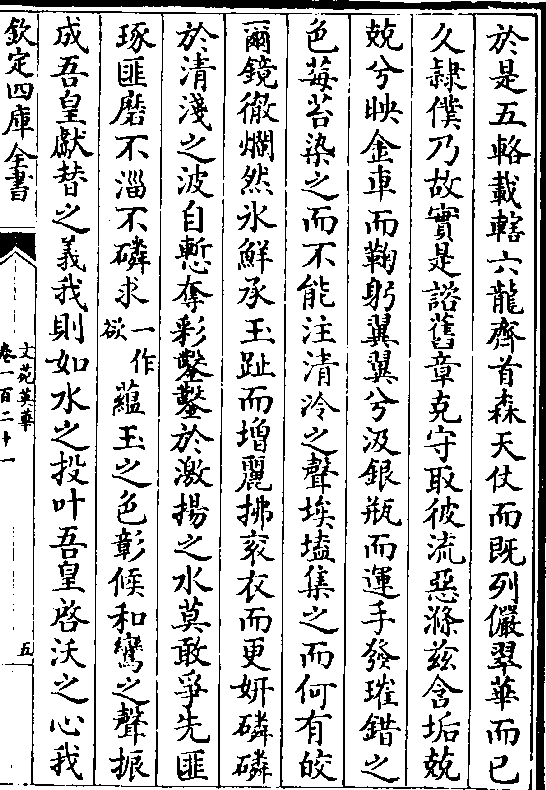 於是五輅載轄六龍齊首森天仗而既列儼翠華而已
久隷僕乃故實是諮舊章克守取彼流惡滌茲含垢兢
兢兮映金車而鞠躬翼翼兮汲銀瓶而運手發璀錯之
色莓苔染之而不能注清泠之聲埃壒集之而何有皎
爾鏡徹爛然氷鮮承玉趾而增麗拂衮衣而更妍磷磷
於清淺之波自慙奪彩鑿鑿於激揚之水莫敢爭先匪
琢匪磨不淄不磷求一作欲蘊玉之色彰候和鸞之聲振
成吾皇獻替之義我則如水之投叶吾皇啓沃之心我
欽定四庫全書
文苑英華
卷一百二十一
五